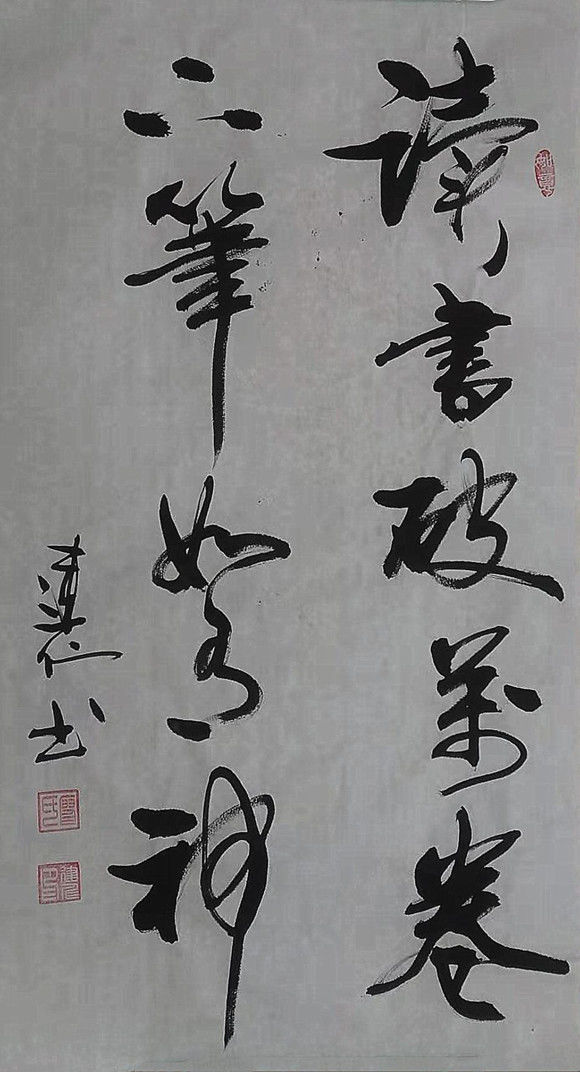 讀書破萬卷
下筆如有神
建仁书